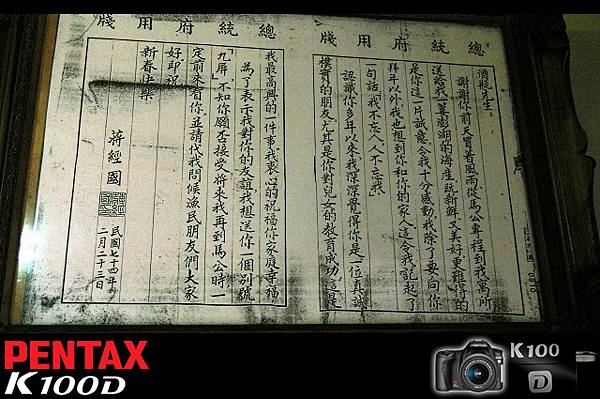 總統府用牋
酒瓶先生：
謝謝你前天冒着風雨從馬公專程到我寓所
送給我一簍澎湖的海生既新鮮又美好更難得的
是你這一片誠意令我十分感動我除了要向你
拜年以外我也想到你和你的家人這令我記起了
一句話「我不忘人人不忘我」
認識你多年以來我深深覺得你是一位真誠
樸實的朋友尤其是你對兒女的教育成功這是
總統府用牋
我最高興的一件事我衷心的祝福你家庭幸福
為了表示我對你的友誼我想送你一個別號
「九屏」不知你願否接受將來我再到馬公時一
定前來看你並請代我問候漁民朋友們大家
好即祝
新春快樂
蔣經國
民國七十四年
二月二十三日
PENTAX
K100D
K100
D